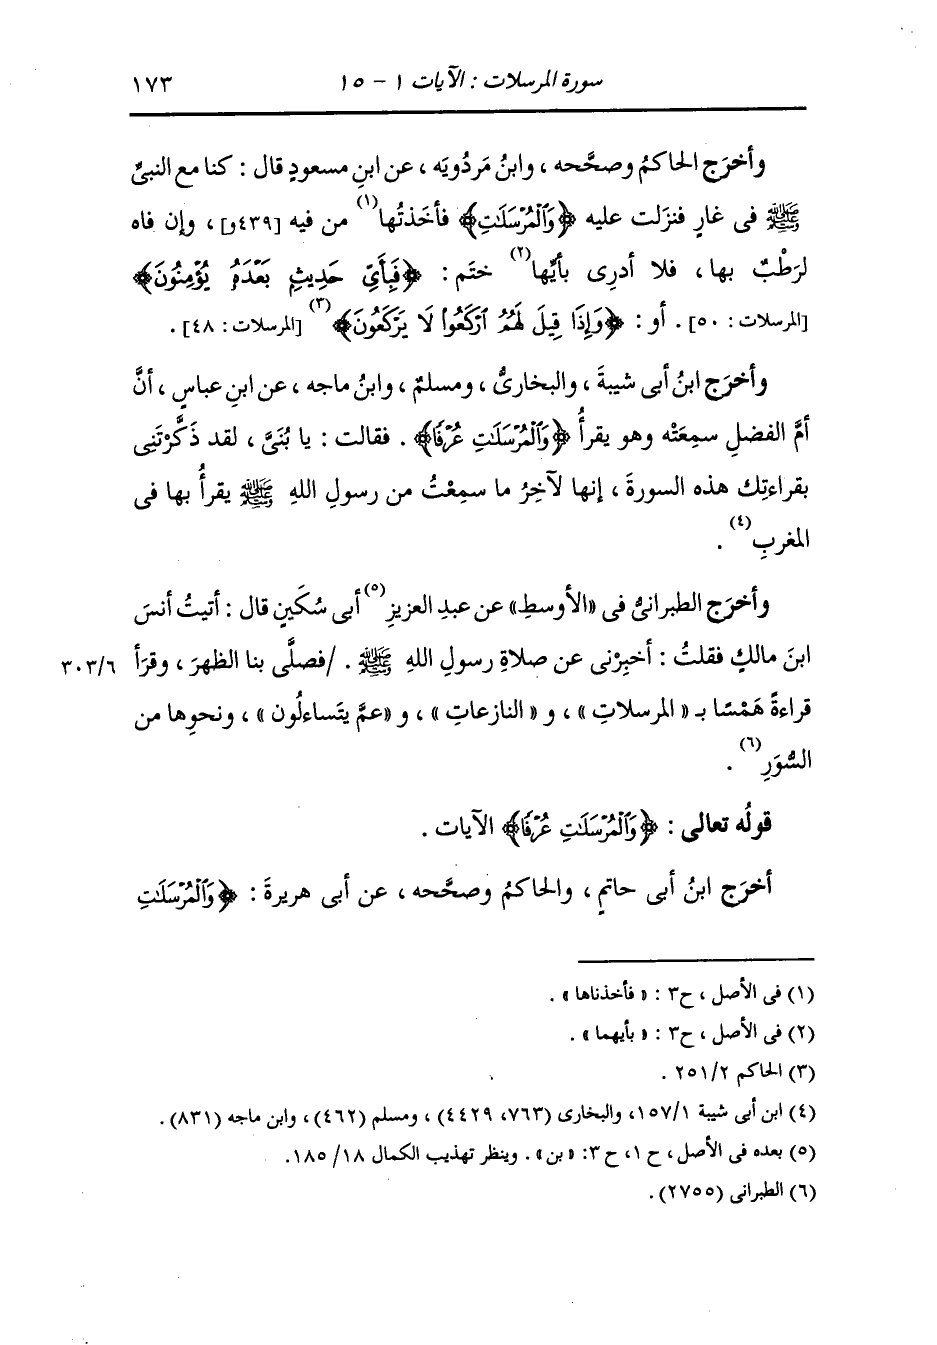 سورة المرسلات : الآيات ١ - ١٥ ١٧٣
وأخرَج الحاكمُ وصحَّحه ، وابنُ مَردُويَه ، عن ابنِ مسعودٍ قال : كنا مع النبىِّ
ﷺ فى غارٍ فنزَلت عليه ﴿وَٱلْمُرْسَلَـٰتِ﴾ فأخَذتُها(١) من فيه [٤٣٩و] ، وإن فاه
لرَطْبٌ بها ، فلا أدرِى بأيِّها(٢) ختَم : ﴿فَبِأَىِّ حَدِيثٍۭ بَعْدَهُۥ يُؤْمِنُونَ﴾
[المرسلات : ٥٠] . أو : ﴿وَإِذَا قِيلَ لَهُمُ ٱرْكَعُوا۟ لَا يَرْكَعُونَ﴾(٣) [المرسلات : ٤٨] .
وأخرَج ابنُ أبى شيبةَ ، والبخارىُّ ، ومسلمٌ ، وابنُ ماجه ، عن ابنِ عباسٍ ، أنَّ
أمَّ الفضلِ سمِعَتْه وهو يقرأُ ﴿وَٱلْمُرْسَلَـٰتِ عُرْفًا﴾ . فقالت : يا بُنَىَّ ، لقد ذَكَّرْتَنِى
بقراءتِك هذه السورةَ ، إنها لَآخِرُ ما سمِعْتُ من رسولِ اللهِ ﷺ يقرأُ بها فى
المغربِ(٤) .
وأخرَج الطبرانىُّ فى «الأوسطِ» عن عبدِ العزيزِ(٥) أبى سُكَينٍ قال : أتيتُ أنسَ
ابنَ مالكٍ فقلتُ : أخبِرْنى عن صلاةِ رسولِ اللهِ ﷺ . /فصلَّى بنا الظهرَ ، وقرَأ ٣٠٣/٦
قراءةً هَمْسًا بـ « المرسلاتِ » ، و « النازعاتِ » ، و «عمَّ يتَساءلُون » ، ونحوِها من
السُّوَرِ(٦) .
قولُه تعالى : ﴿وَٱلْمُرْسَلَـٰتِ عُرْفًا﴾ الآيات .
أخرَج ابنُ أبى حاتمٍ ، والحاكمُ وصحَّحه ، عن أبى هريرةَ : ﴿وَٱلْمُرْسَلَـٰتِ
(١) فى الأصل ، ح٣ : « فأخذناها » .
(٢) فى الأصل ، ح٣ : « بأيهما » .
(٣) الحاكم ٢٥١/٢ .
(٤) ابن أبى شيبة ١٥٧/١، والبخارى (٧٦٣، ٤٤٢٩) ، ومسلم (٤٦٢) ، وابن ماجه (٨٣١) .
(٥) بعده فى الأصل ، ح ١، ح ٣: «بن» . وينظر تهذيب الكمال ١٨/ ١٨٥.
(٦) الطبرانى (٢٧٥٥) .